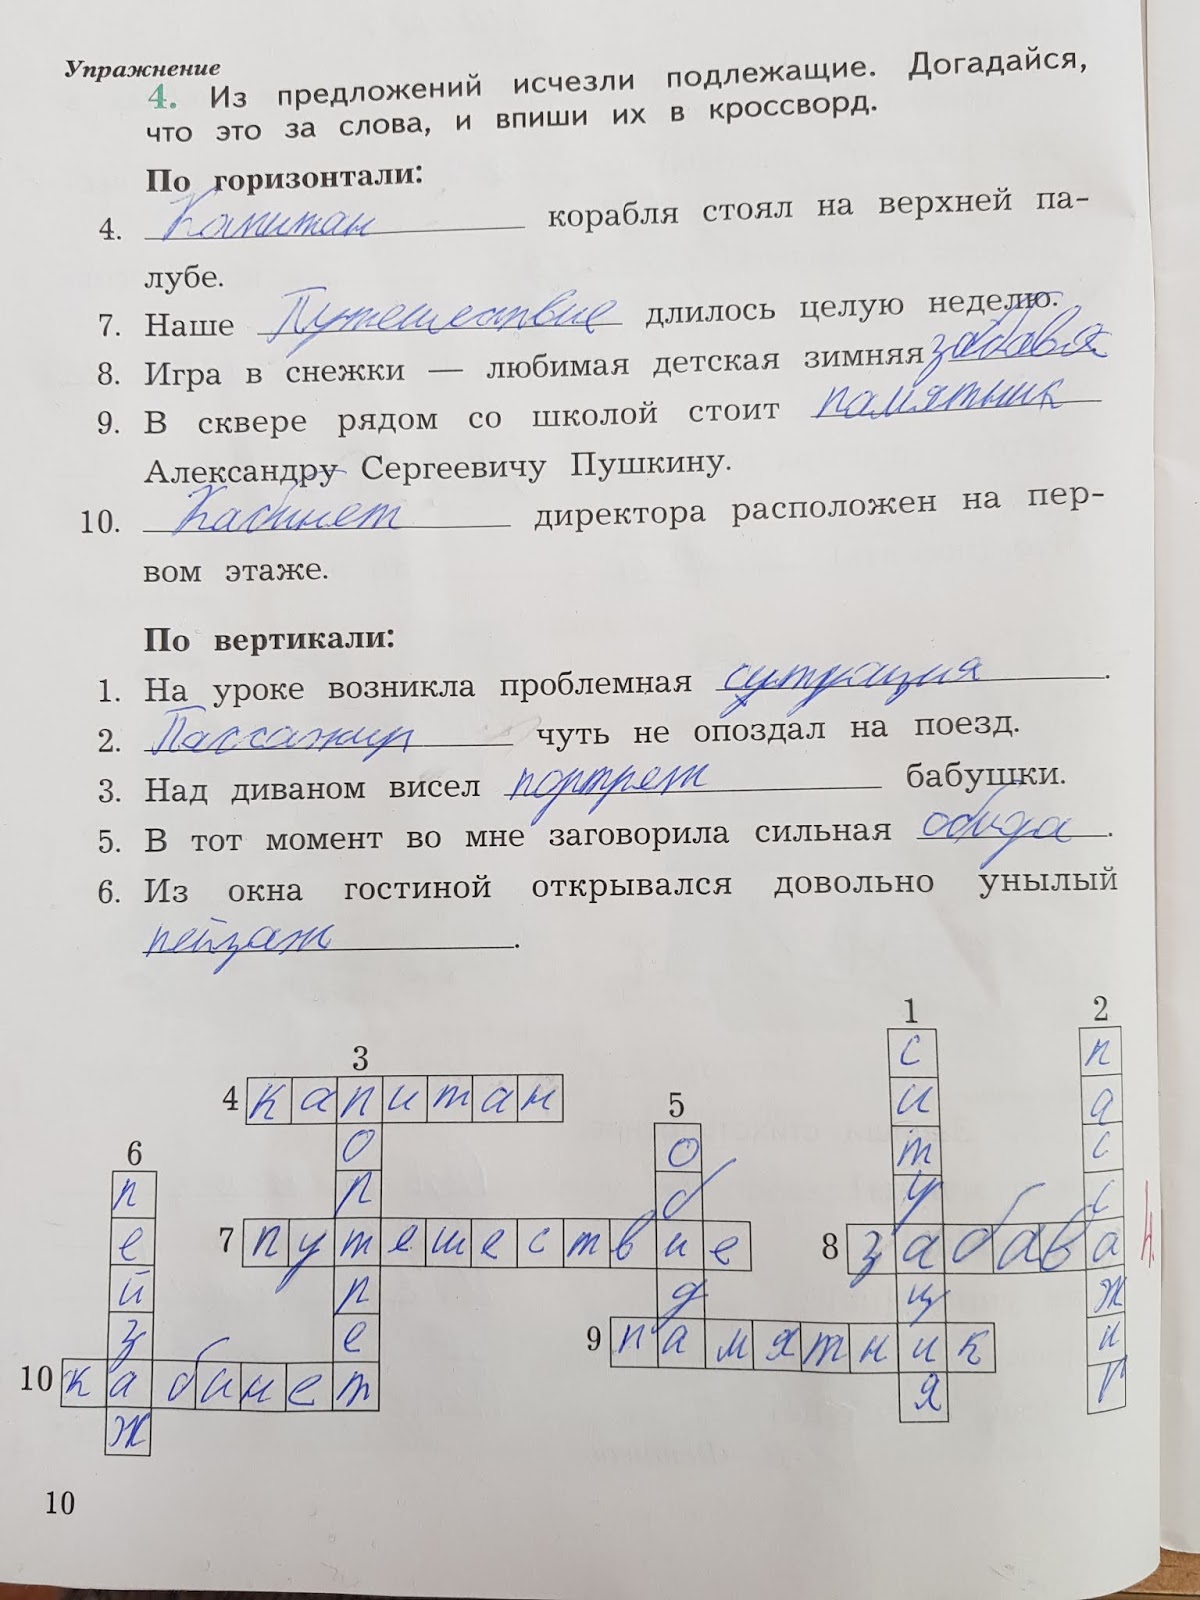 Упражнение
4. Из предложений исчезли подлежащие. Догадайся,
что это за слова, и впиши их в кроссворд.
По горизонтали:
4. Капитан корабля стоял на верхней па-
лубе.
7. Наше Путешествие длилось целую неделю.
8. Игра в снежки — любимая детская зимняя забава
9. В сквере рядом со школой стоит памятник
Александру Сергеевичу Пушкину.
10. Кабинет директора расположен на пер-
вом этаже.
По вертикали:
1. На уроке возникла проблемная ситуация.
2. Пассажир чуть не опоздал на поезд.
3. Над диваном висел портрет бабушки.
5. В тот момент во мне заговорила сильная обида.
6. Из окна гостиной открывался довольно унылый
пейзаж.
1 2
3 с п
4 капитан 5 и а
6 о о т с
п р б у с
е 7 путешествие 8 забава
й п д ц ж
з е 9 памятник и
10 кабинет я р
ж
10